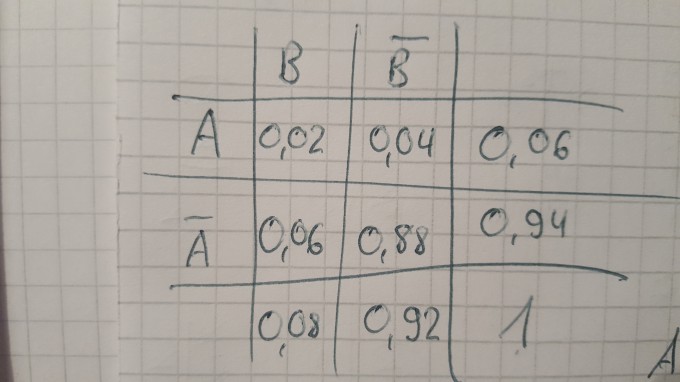 B B̅
A 0,02 0,04 0,06
A̅ 0,06 0,88 0,94
0,08 0,92 1
A